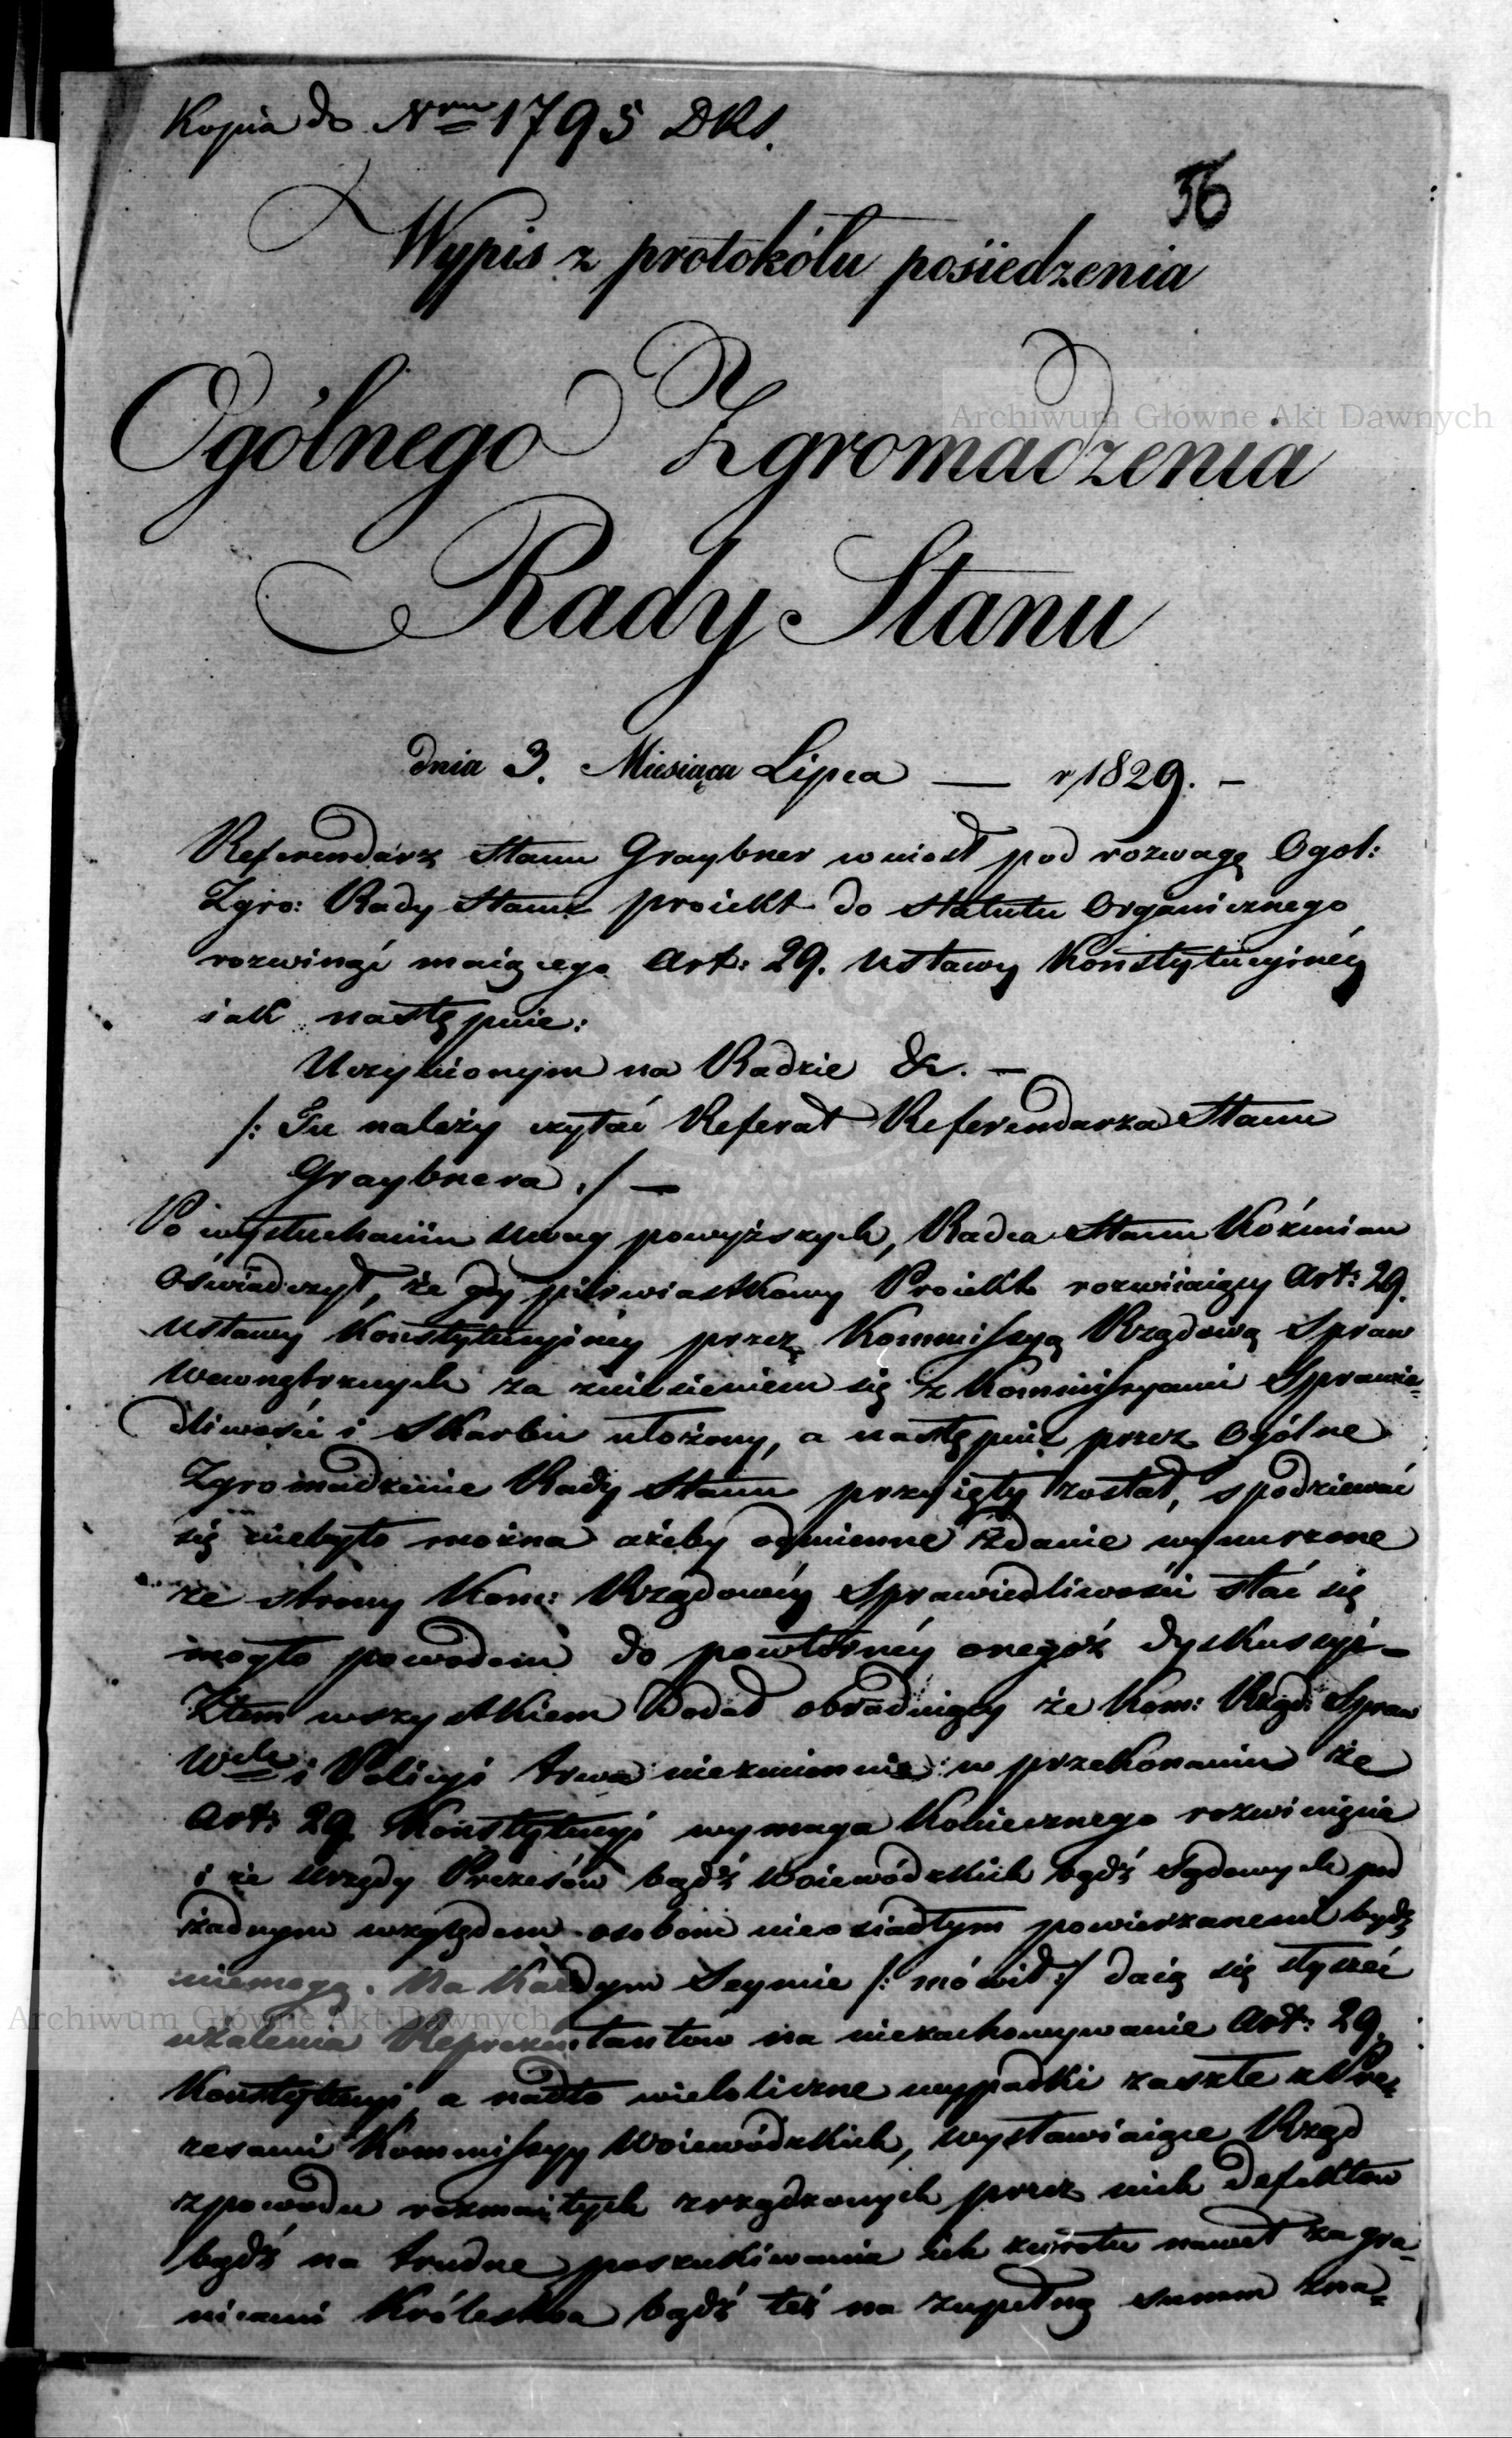 Kopia do Nru 1795 DRS.
56
Wypis z protokółu posiedzenia
Ogólnego Zgromadzenia
Rady Stanu
dnia 3. Miesiąca Lipca — r 1829. —
Referendarz Stanu Graybner wniosł pod rozwagę Ogol:
Zgro: Rady Stanu proiekt do Statutu Organicznego
rozwinąć maiącego Art: 29. Ustawy Konstytucyinéy
iak następuie:
Uczynionym na Radzie &c. —
/: Tu należy czytać Referat Referendarza Stanu
Graybnera :/ —
Po wysłuchaniu uwag powyższych, Radca Stanu Koźmian
oświadczył, że gdy pierwiastkowy Proiekt rozwiiaiący Art: 29.
Ustawy Konstytucyinéy przez Kommissyą Rządową Spraw
Wewnętrznych za zniesieniem się z Kommissyami Sprawie=
dliwości i Skarbu ułożony, a następnie przez Ogólne
Zgromadzenie Rady Stanu przyięty został, spodziewać
się niebyło można ażeby odmienne zdanie wynurzone
ze strony Kom: Rządowéy Sprawiedliwości stać się
mogło powodem do powtórnéy onegóż dyskussyi —
Ztem wszystkiem dodał obraduiący że Kom: Rząd: Spraw
Wch i Policyi trwa niezmiennie w przekonaniu że
Art: 29. Konstytucyi wymaga koniecznego rozwinięcia
i że Urzędy Prezesów bądź Woiewódzkich bądź Sądowych pod
żadnym względem osobom nieosiadłym powierzanemi bydź
niemogą. Na każdym Seymie /: mówił :/ daią się słyszeć
użalenia Reprezentantow na niezachowywanie Art: 29.
Konstytucyi, a nadto wieloliczne wypadki zaszłe z Pre=
zesami Kommissyy Woiewódzkich, wystawiaiące Rząd
z powodu rozmaitych zrządzonych przez nich defektow
bądź na trudne poszukiwania ich zwrotu nawet za gra=
nicami Królestwa bądź też na zupełną summ zna=
Archiwum Główne Akt Dawnych
Archiwum Główne Akt Dawnych